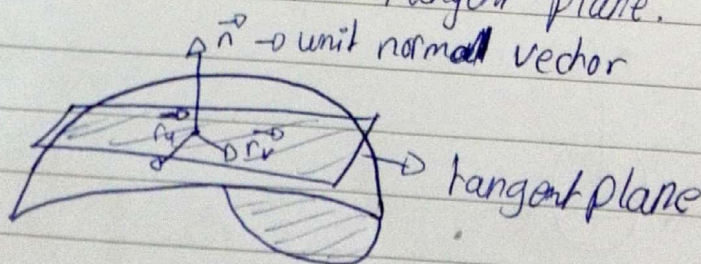 tangent plane.
n⃗ → unit normal vector
r⃗u r⃗v
tangent plane